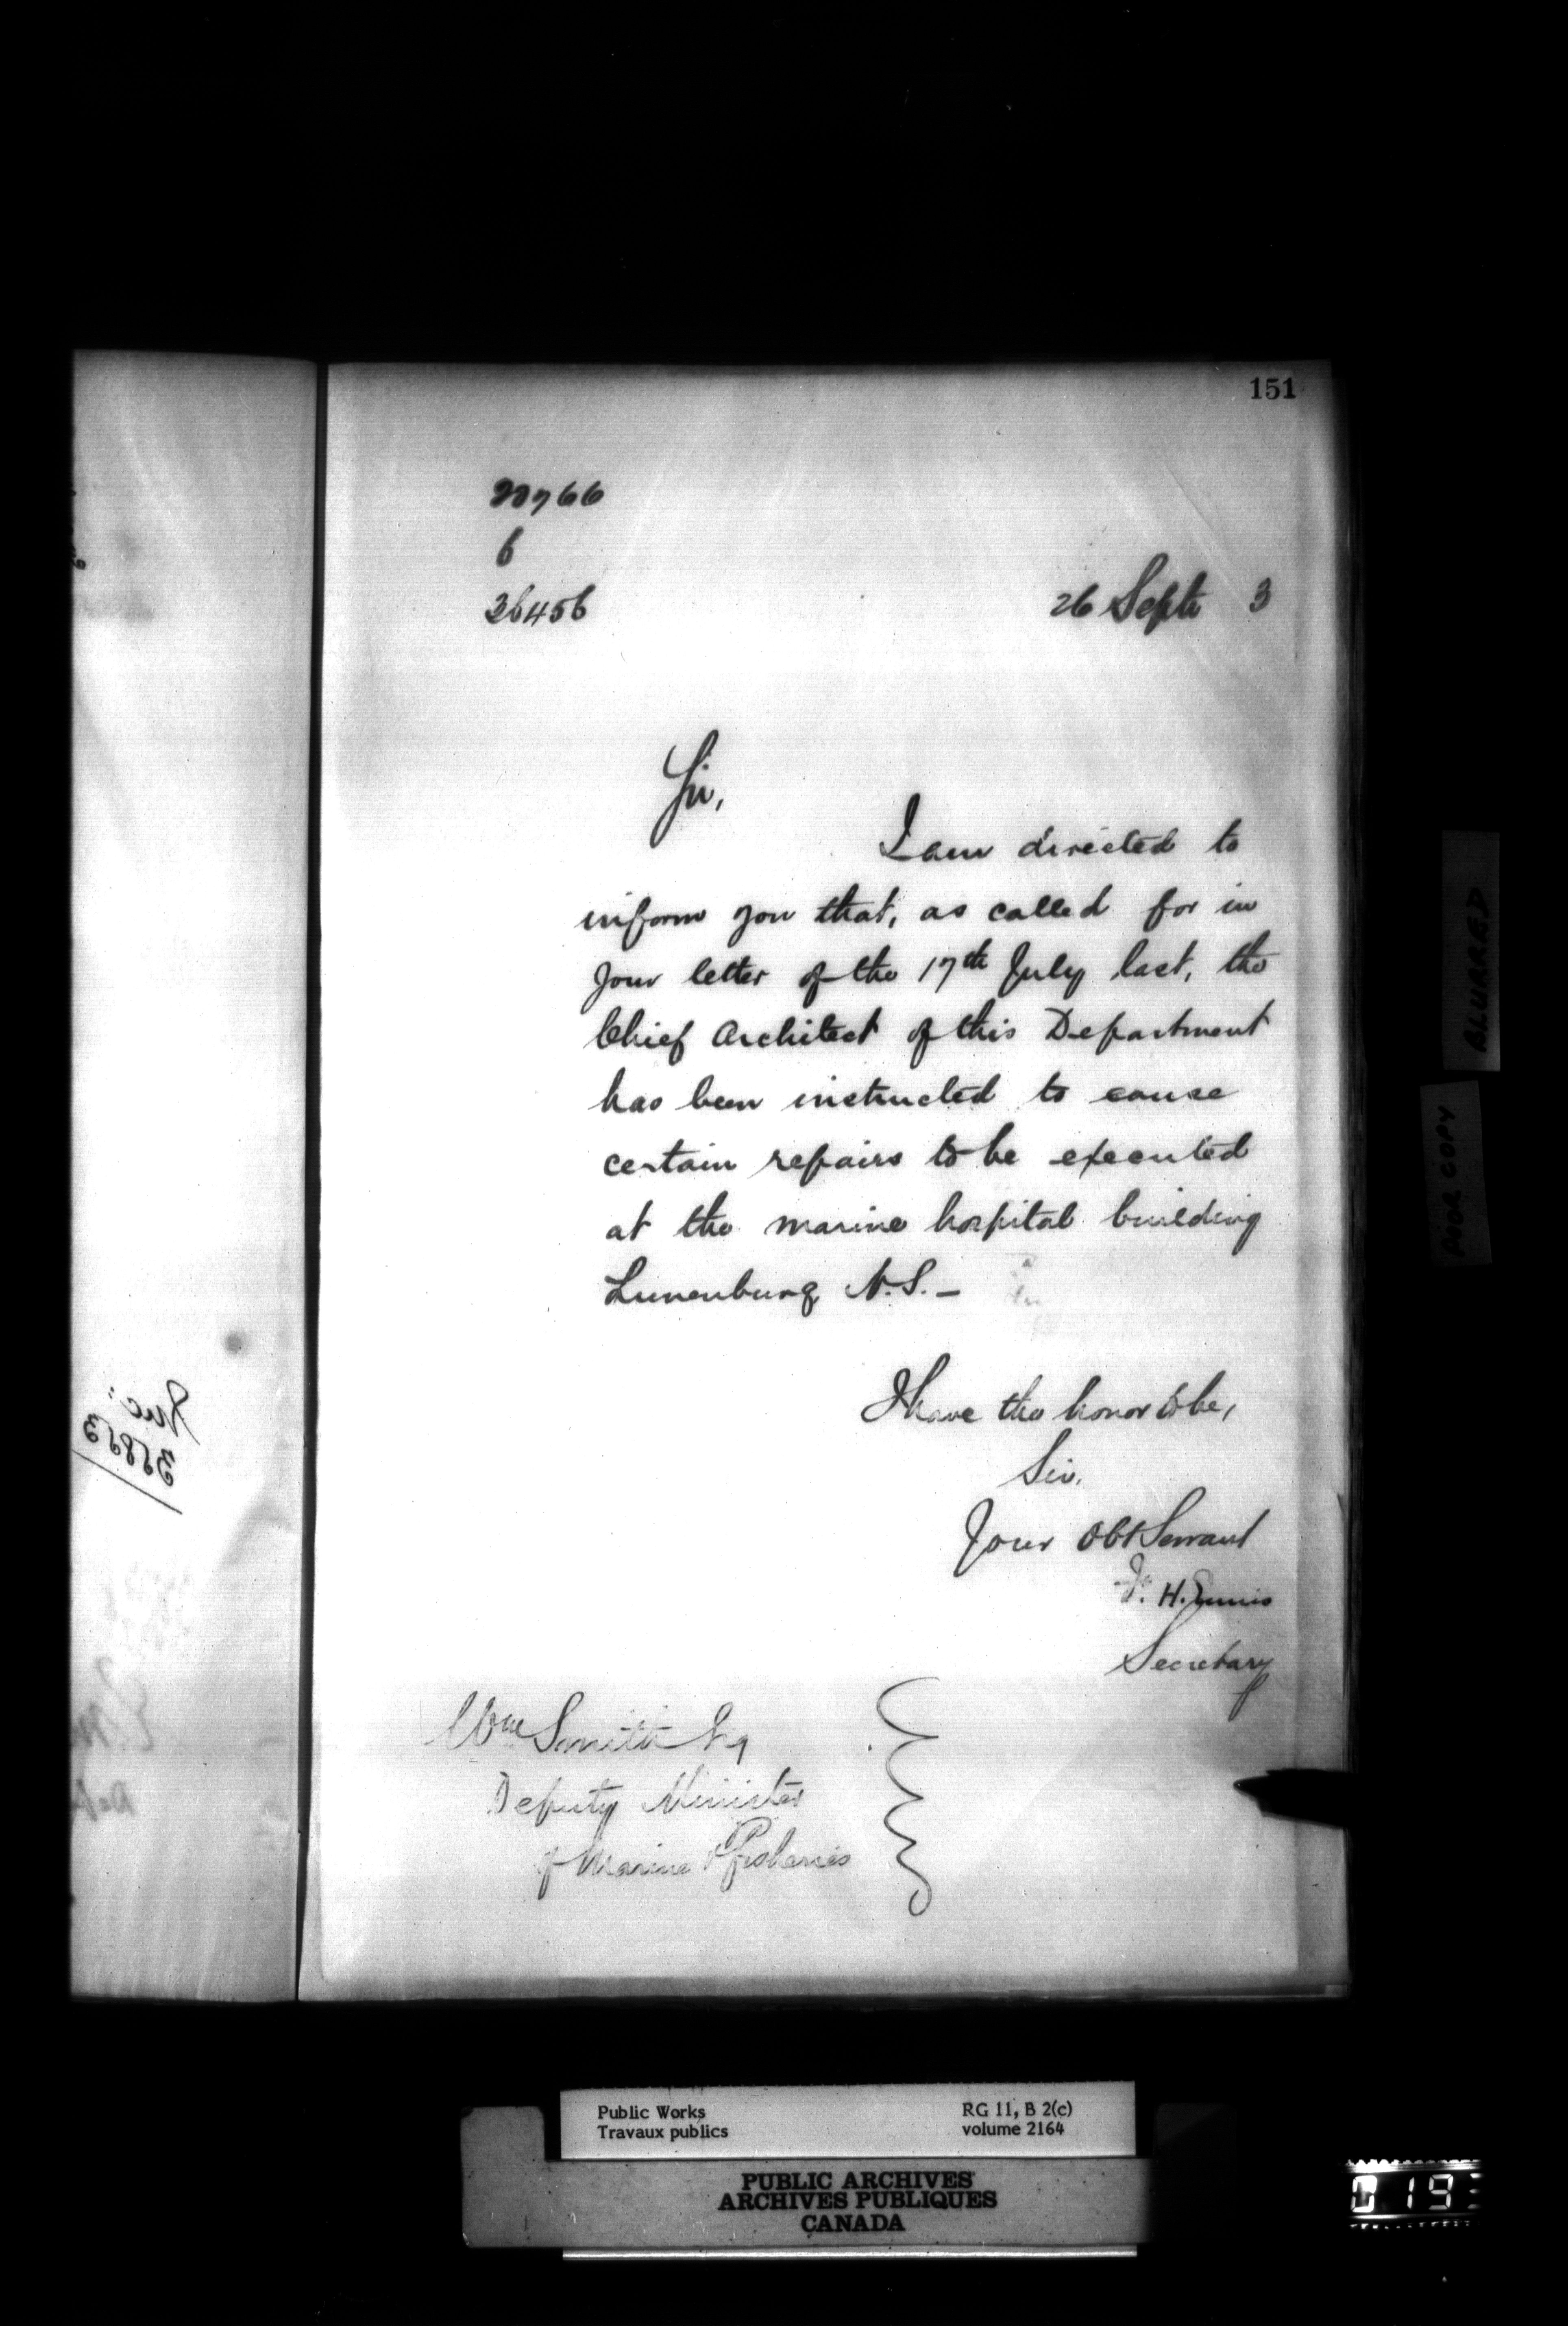 151
20766
6
36456
26 Septr 3
Sir,
I am directed to
inform you that, as called for in
your letter of the 17th July last, the
Chief Architect of this Department
has been instructed to cause
certain repairs to be executed
at the marine hospital building
Lunenburg N.S. –
I have the honor to be,
Sir,
Your Obt Servant
F. H. Ennis
Secretary
Wm Smith Esq
Deputy Minister
of Marine & Fisheries
35853
BLURRED
POOR COPY
Public Works
Travaux publics
RG 11, B 2(c)
volume 2164
PUBLIC ARCHIVES
ARCHIVES PUBLIQUES
CANADA